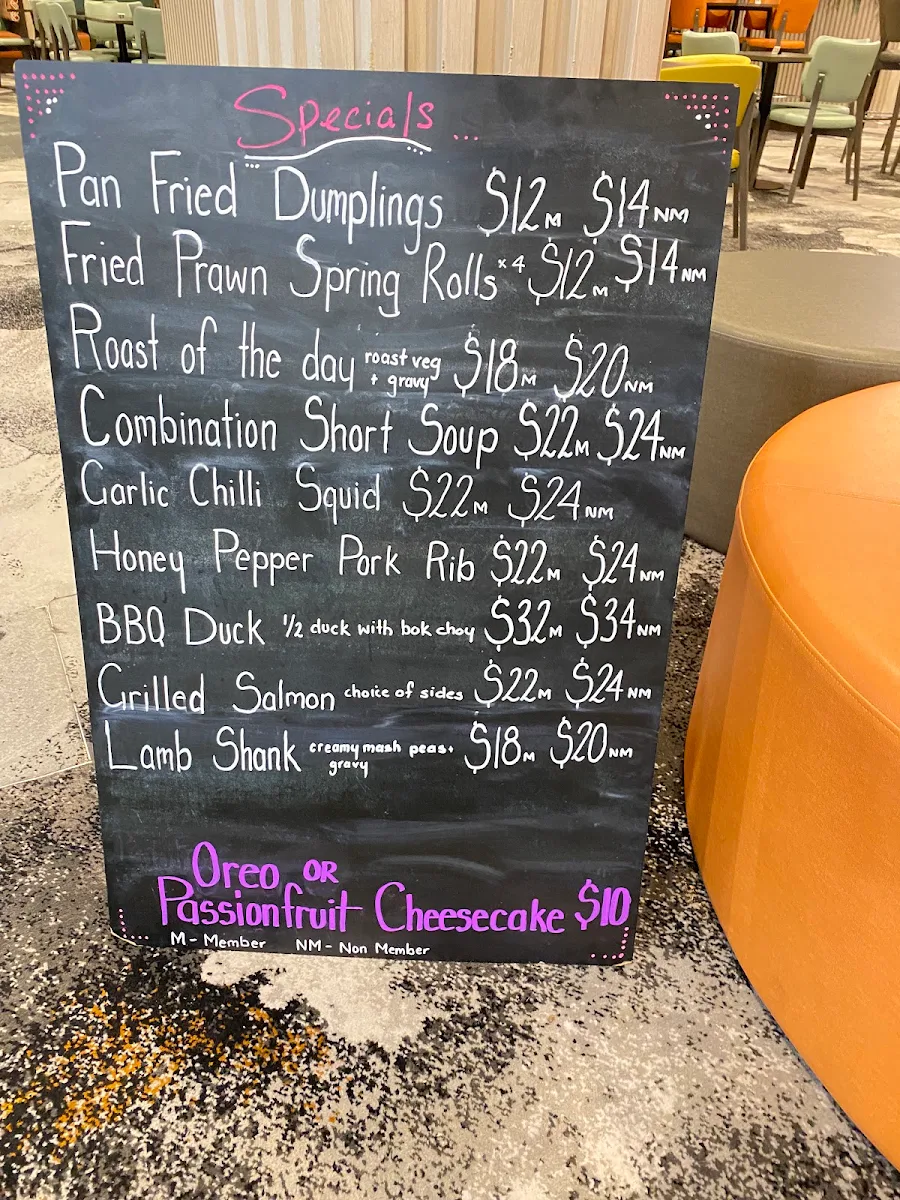 Specials ...
Pan Fried Dumplings $12 M $14 NM
Fried Prawn Spring Rolls x4 $12 M $14 NM
Roast of the day roast veg + gravy $18 M $20 NM
Combination Short Soup $22 M $24 NM
Garlic Chilli Squid $22 M $24 NM
Honey Pepper Pork Rib $22 M $24 NM
BBQ Duck 1/2 duck with bok choy $32 M $34 NM
Grilled Salmon choice of sides $22 M $24 NM
Lamb Shank creamy mash peas + gravy $18 M $20 NM
Oreo OR
Passionfruit Cheesecake $10
M - Member NM - Non Member